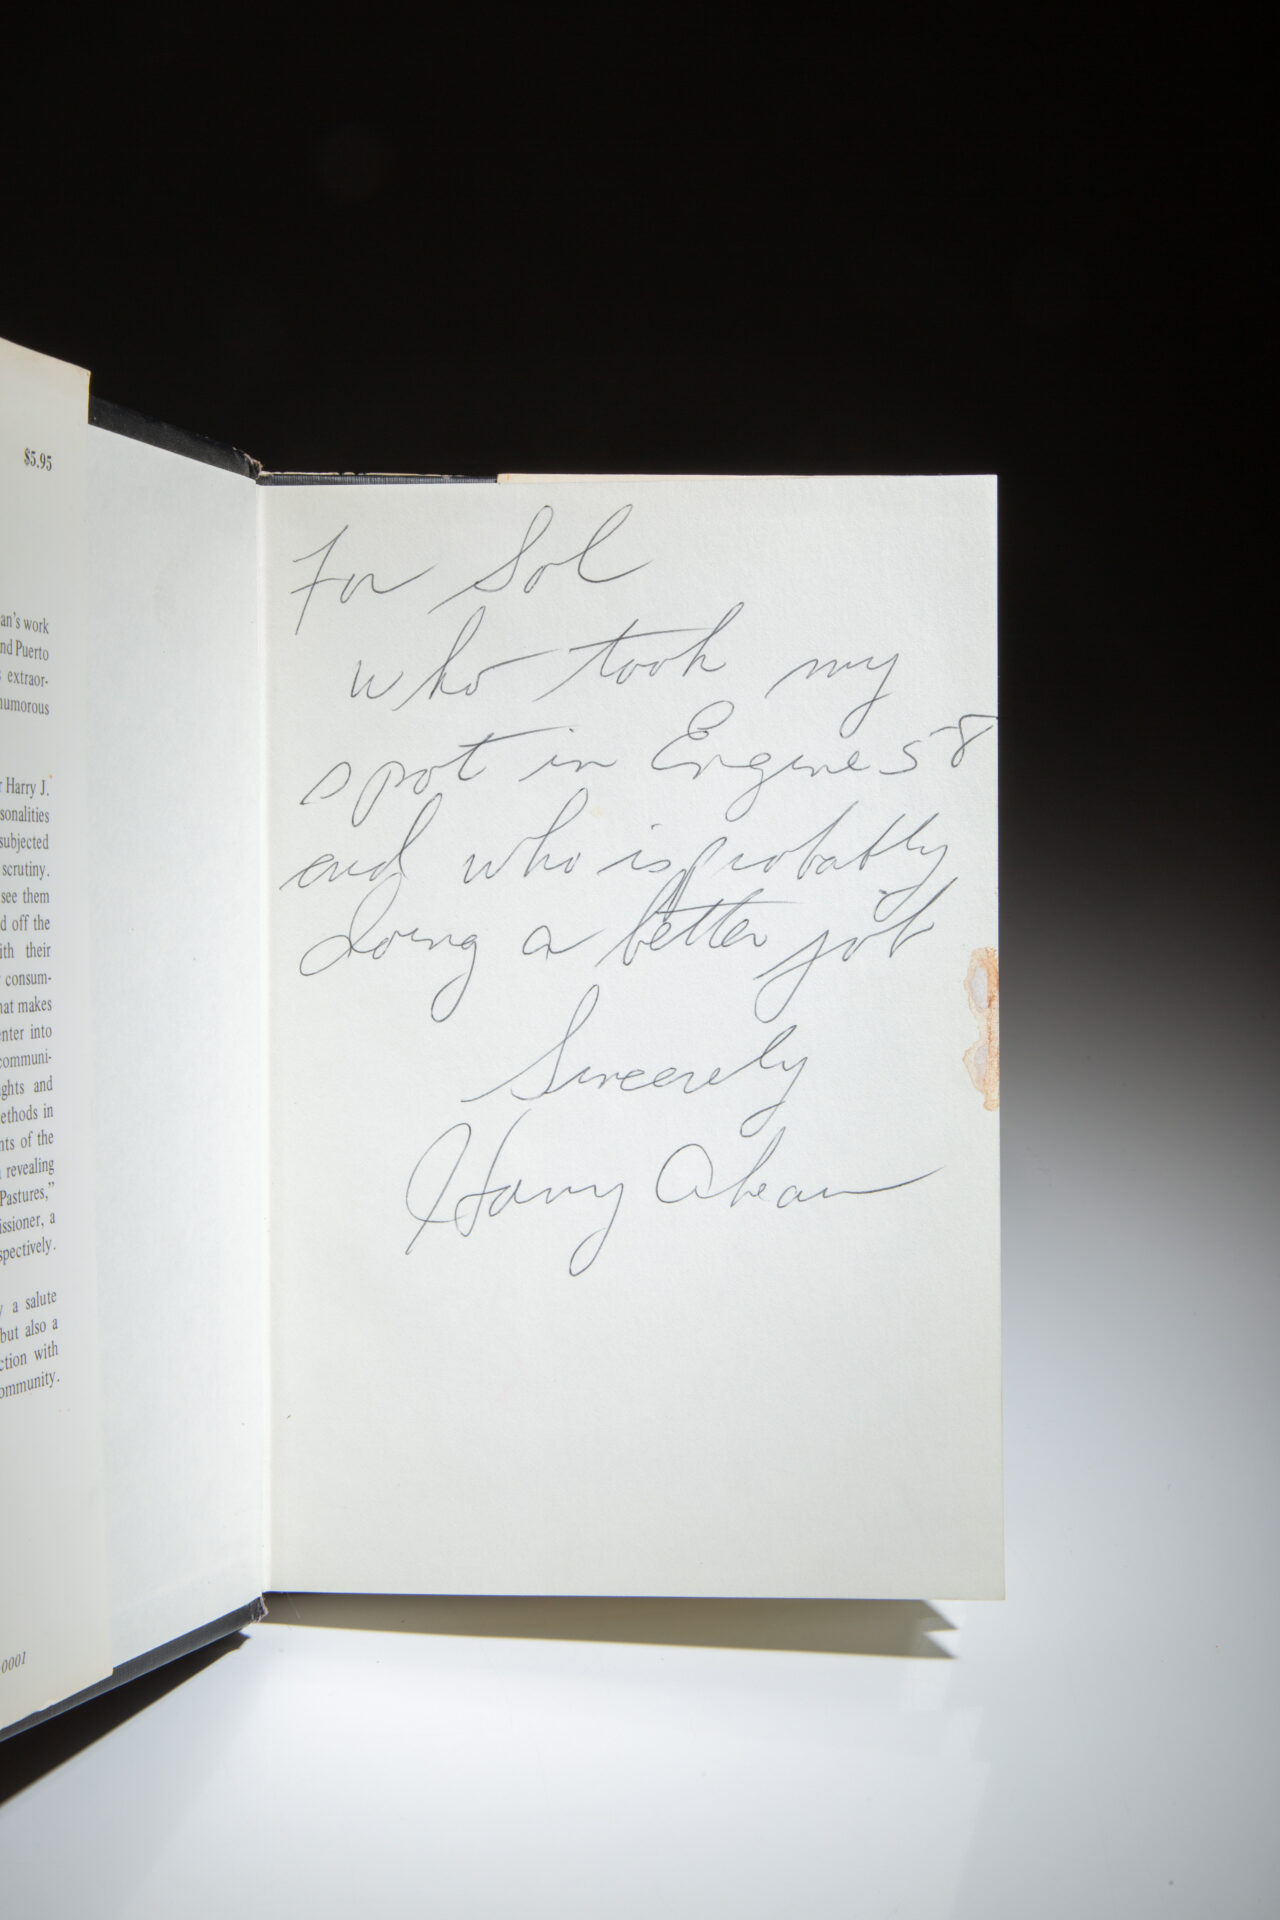 $5.95
an's work
nd Puerto
extraor-
humorous
Harry J.
sonalities
subjected
scrutiny.
see them
d off the
ith their
consum-
hat makes
enter into
communi-
ghts and
ethods in
nts of the
revealing
Pastures,"
issioner, a
spectively.
a salute
but also a
ction with
ommunity.
0001
For Sol
who took my
spot in Engine 58
and who is probably
doing a better job
Sincerely
Harry Ahearn